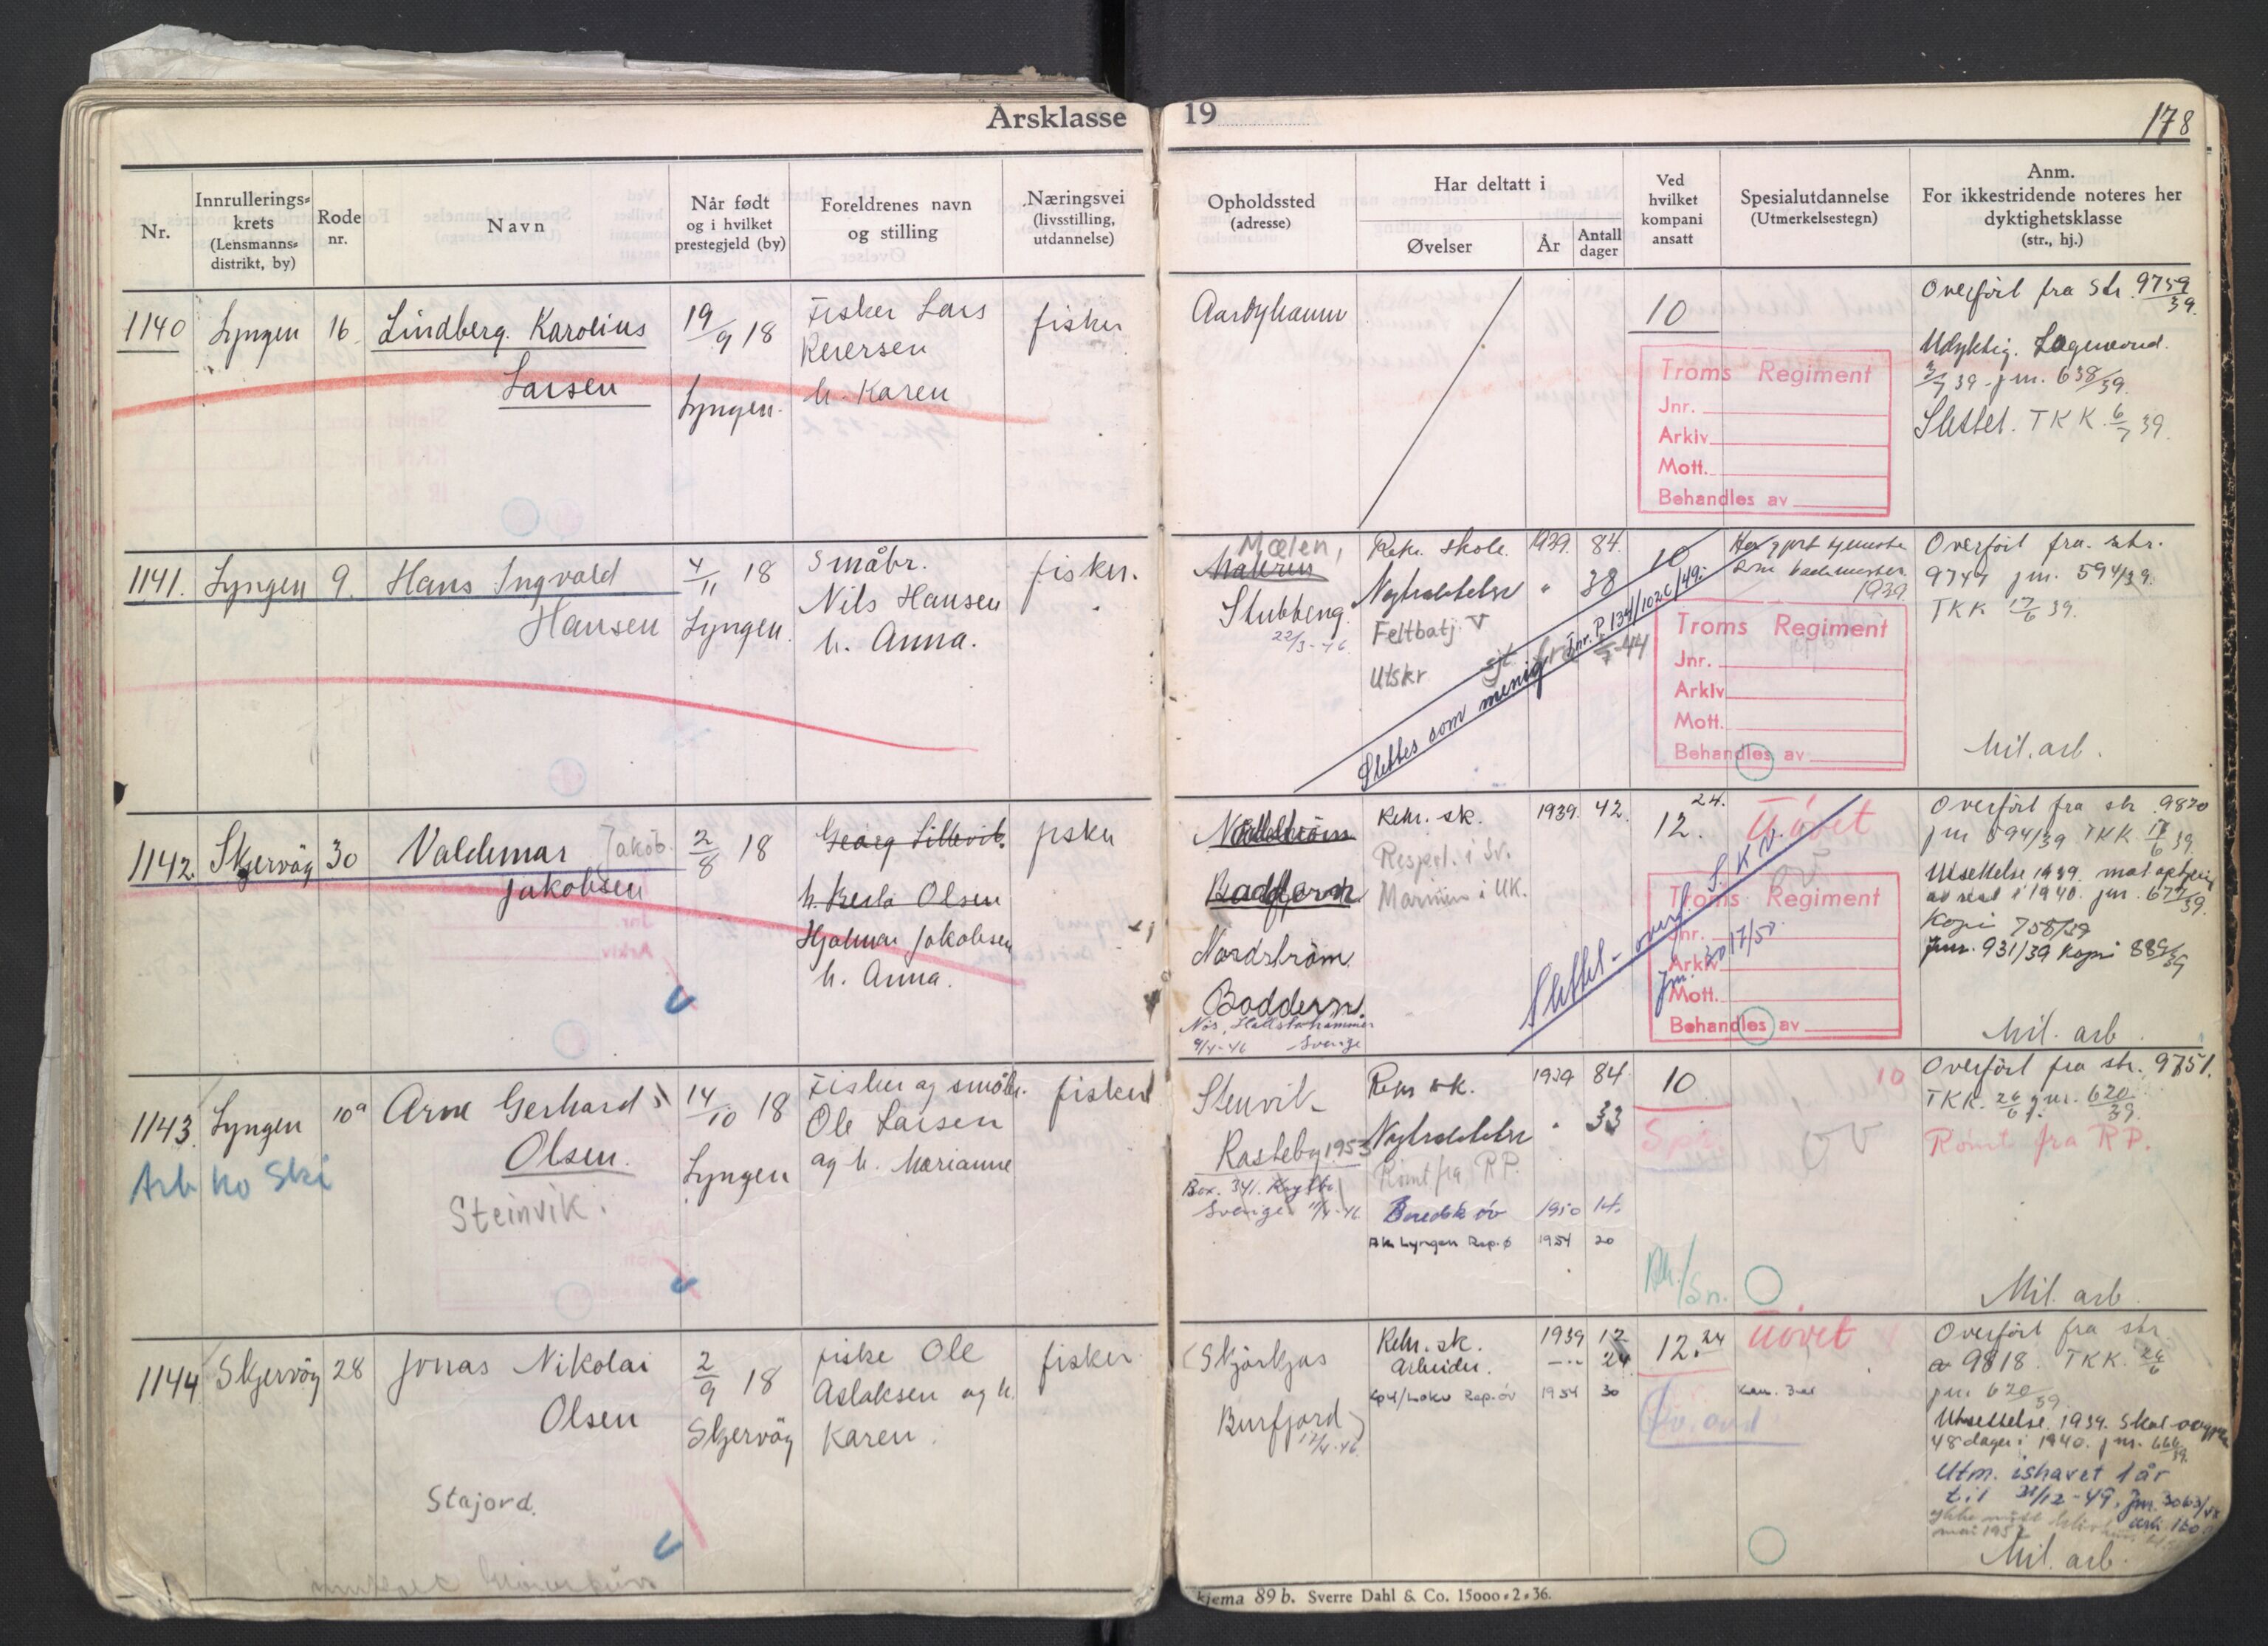 Årsklasse 19
178
Nr.
Innrullerings-
krets
(Lensmanns-
distrikt, by)
Rode
nr.
Navn
Når født
og i hvilket
prestegjeld (by)
Foreldrenes navn
og stilling
Næringsvei
(livsstilling,
utdannelse)
Opholdssted
(adresse)
Har deltatt i
Øvelser
År
Antall
dager
Ved
hvilket
kompani
ansatt
Spesialutdannelse
(Utmerkelsestegn)
Anm.
For ikkestridende noteres her
dyktighetsklasse
(str., hj.)
1140
Lyngen
16
Lindberg. Karolius
Larsen
19/9 18
Lyngen.
Fisker Lars
h. Karen
fisker
10
Troms Regiment
Jnr.
Arkiv
Mott.
Behandles av
Overført fra Str. 9759/39.
Udyktig.
jnr. 638/39.
Slettet. TKK. 6/7 39.
1141.
Lyngen
9.
Hans Ingvald
Hansen
4/11 18
Lyngen.
Småbr.
Nils Hansen
h. Anna.
fisker.
Mælen,
Stubbeng.
22/3-46.
Rekr. skole. 1939. 84.
Nøytralitetsv " 38
Feltbatj. V
Utskr
10
Slettes som menig Jnr. P. 134/1020/49.
Har gjort tjeneste
som
1939.
Troms Regiment
Jnr.
Arkiv
Mott.
Behandles av
Overført fra str.
9744 jnr. 594/39.
TKK 17/6 39.
Mil. arb.
1142.
Skjervøy
30
Valdemar Jakob.
Jakobsen
2/8 18
Georg Lillevik.
Olsen
Hjalmar Jakobsen
h. Anna.
fisker
Nordstrøm
Badderen.
9/4-46 Sverige
Rekr. sk. 1939. 42.
24.
12.
Uøvet
Slettet - overf. S.K.V.
Troms Regiment
Jnr.
Arkiv
Mott.
Behandles av
Overført fra str 9820
jnr 594/39 TKK 17/6 39.
Utsettelse 1939.
av rest i 1940. jnr. 677/39.
Kopi 758/39
Jnr. 931/39 Kopi
Mil. arb.
1143.
Lyngen
10a
Arne Gerhard
Olsen.
Steinvik.
Arb ko Ski
14/10 18
Lyngen
Fisker og småbr.
Ole Larsen
og h. Marianne
fisker
Stenvik
Rasteby 1953
Box. 341.
Sverige 11/4-46
Rekr sk. 1939 84.
Nøytralitetsv " 33
Rømt fra RP.
Beredsk øv 1950 14.
Ak Lyngen Rep.ø 1954 20
10
10
ØV
Overført fra str. 9751.
TKK. 26/6 jnr. 620/39.
Rømt fra RP.
Mil. arb.
1144
Skjervøy
28
Jonas Nikolai
Olsen
Stajord.
2/9 18
Skjervøy
fiske Ole
Aslaksen og h.
Karen.
fisker.
Burfjord
12/4-46
Rekr. sk. 1939 12
Arbeider. 24
Rep.øv 1954 30
12. 24
Uøvet
Overført fra str.
9818. TKK. 26/6
jnr. 620/39.
Utsettelse 1939. Skal
48 dager i 1940. jnr. 666/39.
Utm. ishavet 1 år
til 31/12-49.
Mil. arb.
kjema 89 b. Sverre Dahl & Co. 15000-2-36.